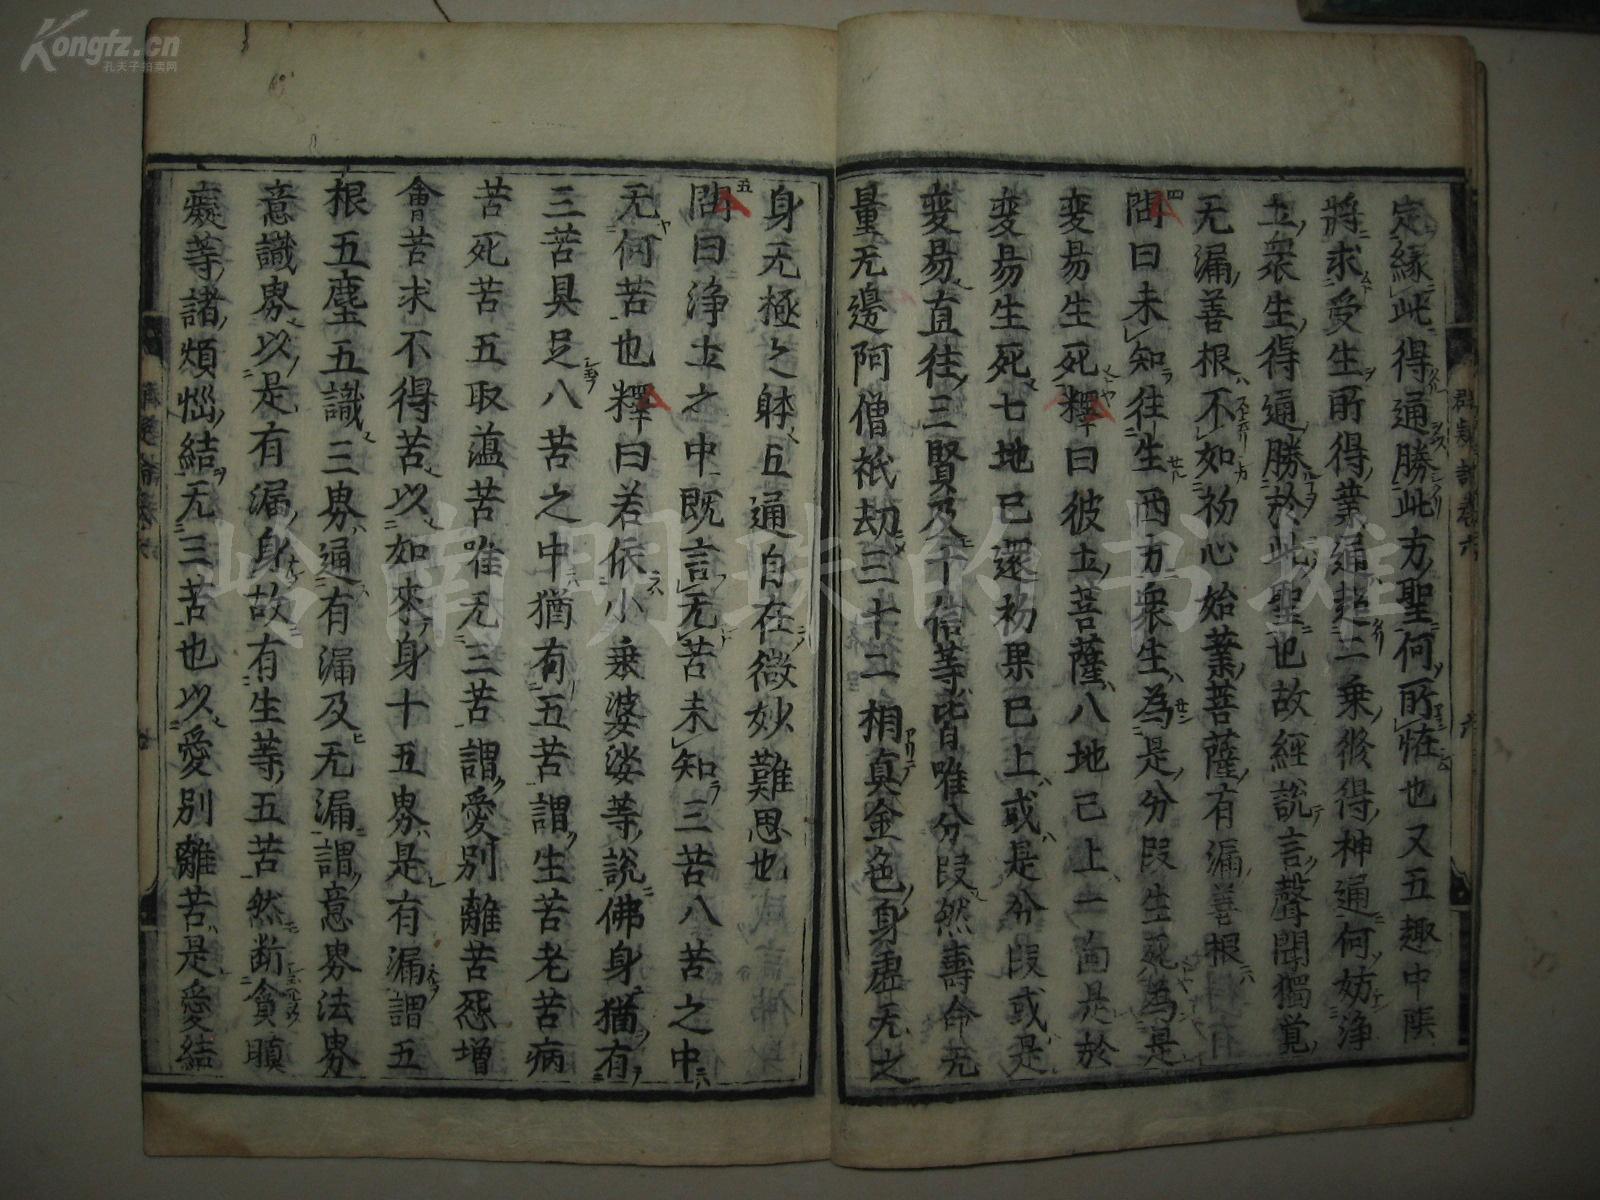 定緣此得通勝此方聖何所恠也又五趣中陰
將求受生所得業通超二乗修得神通何妨浄
土衆生得通勝於此聖也故經説言聲聞獨覚
无漏善根不如初心始業菩薩有漏善根
問曰未知往生西方衆生為是分段生死為是
変易生死釋曰彼土菩薩八地已上一向是於
変易生死七地已還初果已上或是分段或是
変易直往三賢及十信等皆唯分段然壽命无
量无邊阿僧祇劫三十二相真金色身虚无之
身无極之躰五通自在微妙難思也
問曰浄土之中既言无苦未知三苦八苦之中
无何苦也釋曰若依小乗婆娑等説佛身猶有
三苦具足八苦之中猶有五苦謂生苦老苦病
苦死苦五取蕰苦唯无三苦謂愛別離苦怨増
會苦求不得苦以如來身十五界是有漏謂五
根五塵五識三界通有漏及无漏謂意界法界
意識界以是有漏身故有生等五苦然断貪瞋
癡等諸煩惱結无三苦也以愛別離苦是愛結
群疑論巻六
四
五
Kongfz.cn
孔夫子拍卖网
岭南明珠的书摊